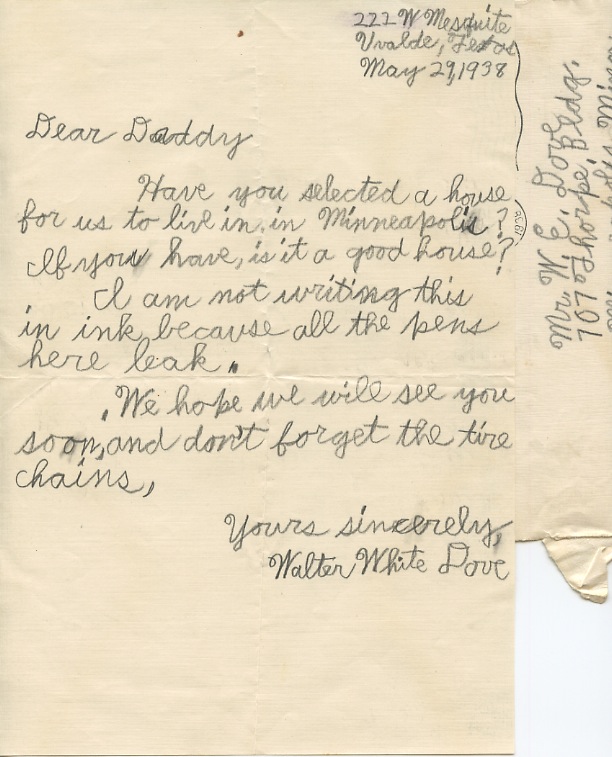 222 W Mesquite
Uvalde, Texas
May 29, 1938
Dear Daddy
Have you selected a house
for us to live in, in Minneapolis?
If you have, is it a good house?
I am not writing this
in ink, because all the pens
here leak.
We hope we will see you
soon, and don't forget the tire
chains,
Yours sincerely,
Walter White Dove
Mr. W. E. Dove
707 Thorpe Bldg.